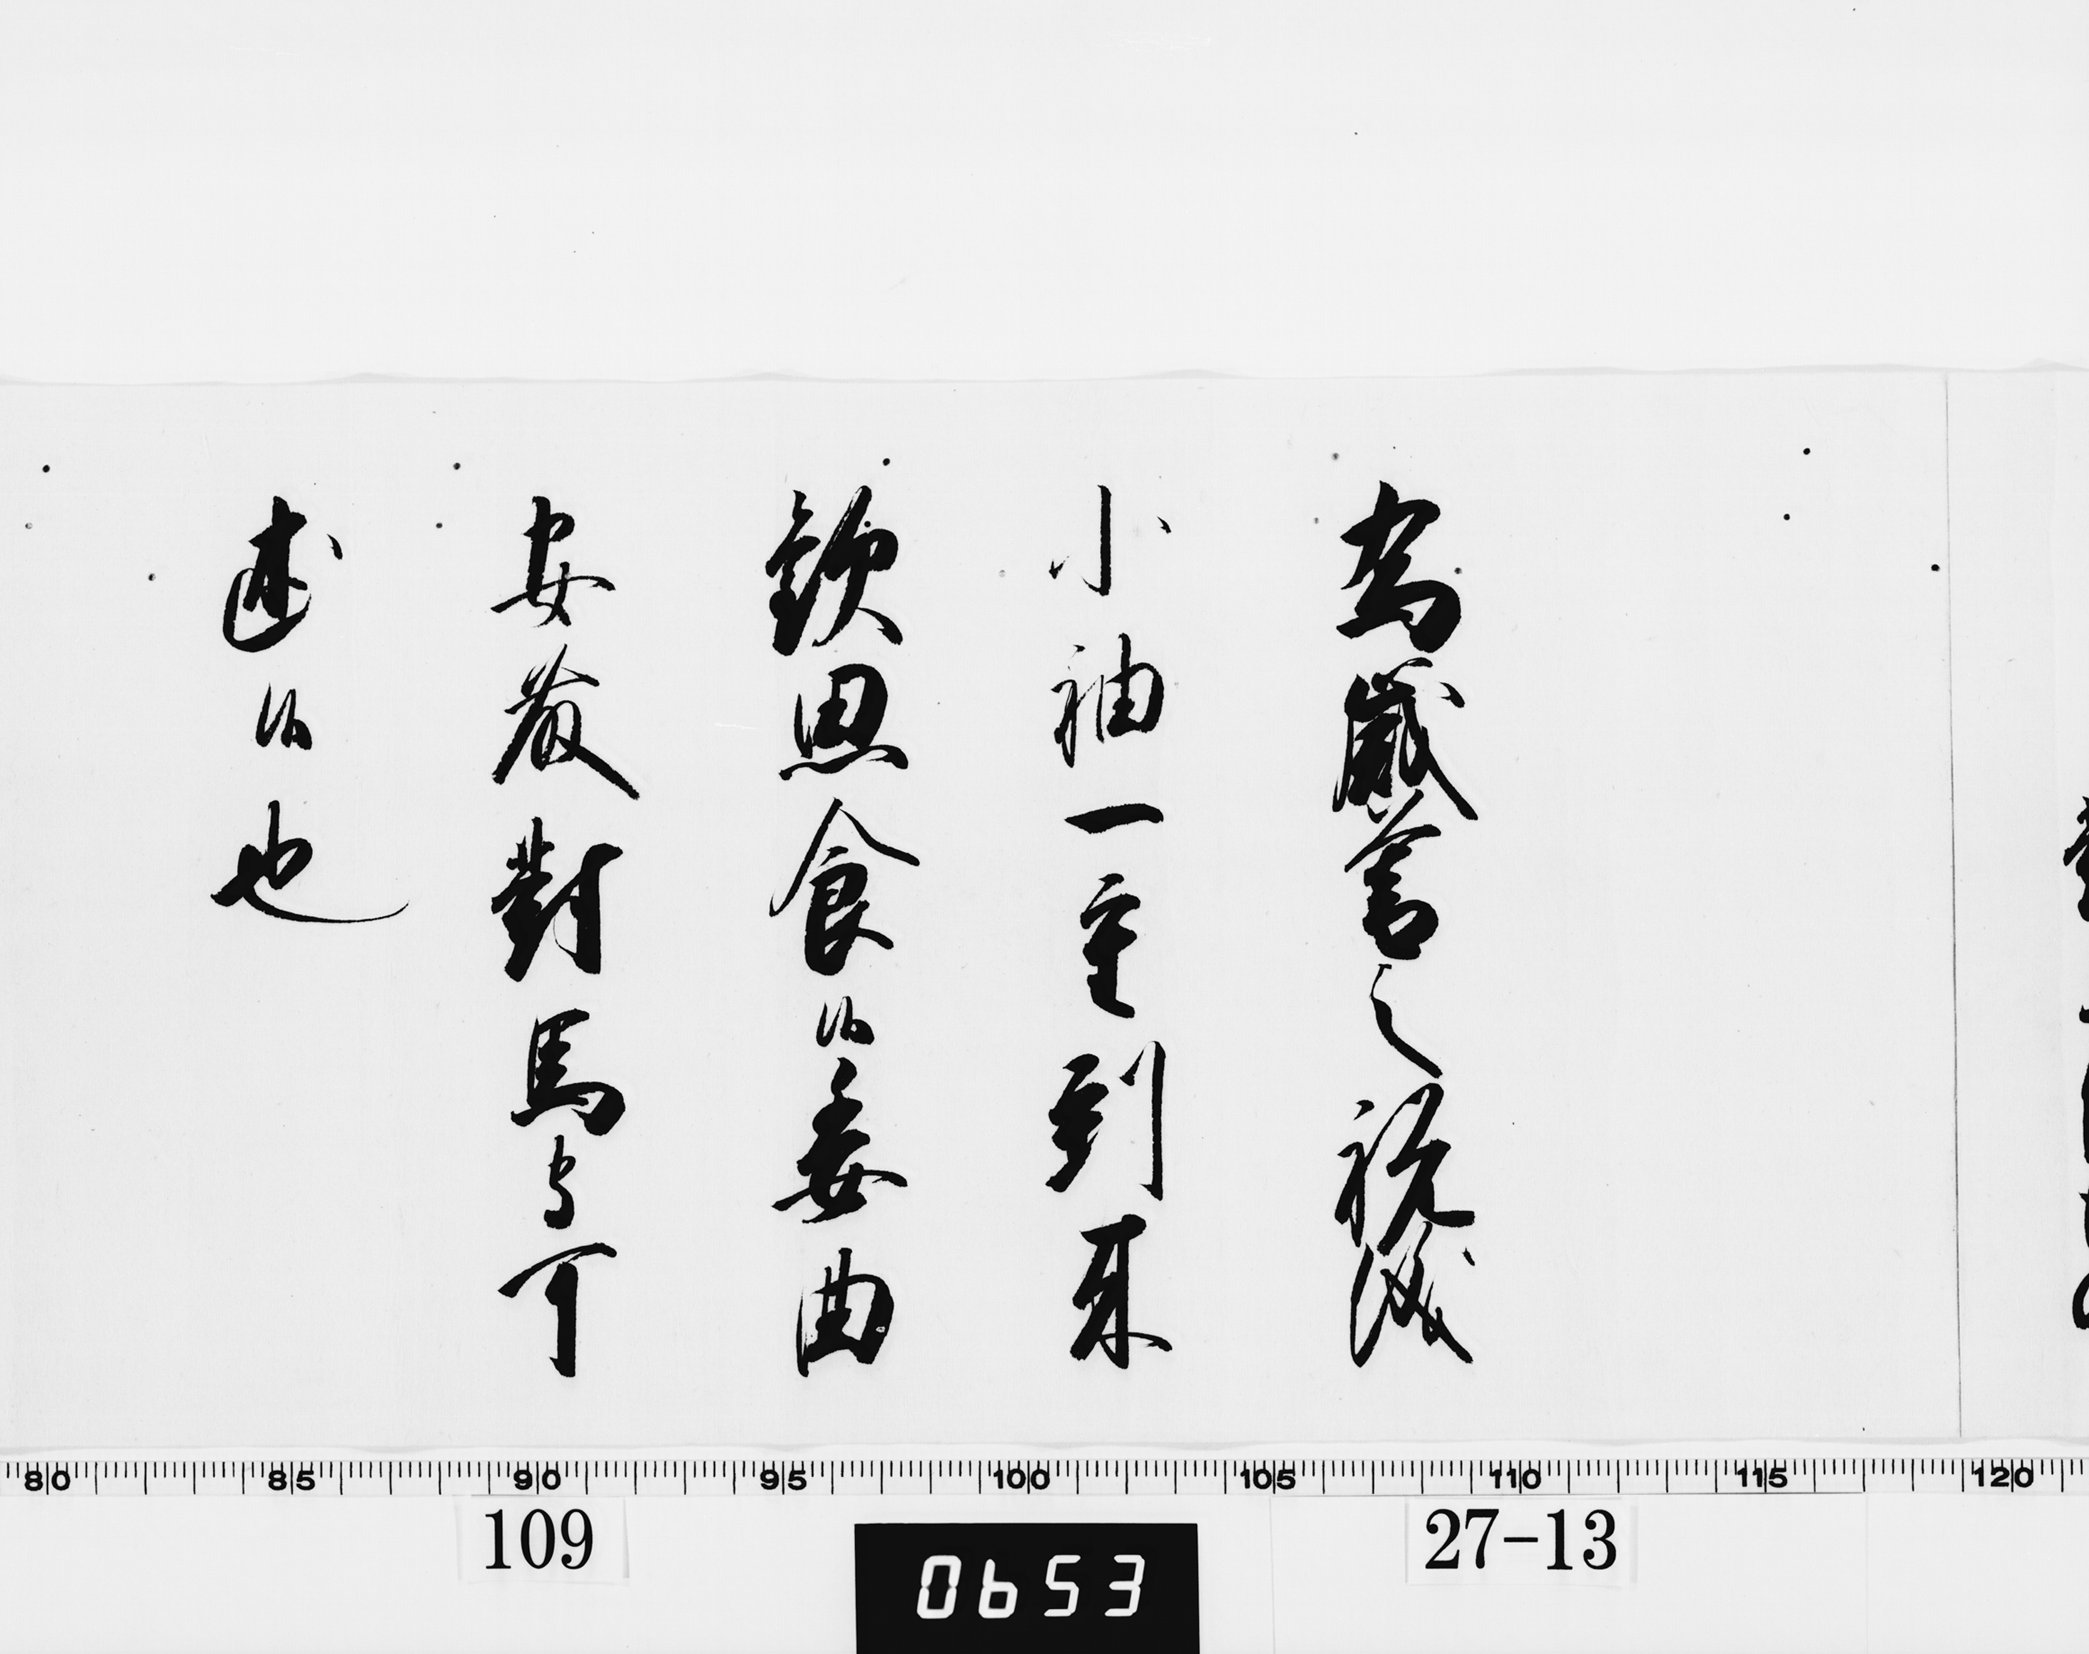 為歳暮之祝儀
小袖一重到来
歓思食候委曲
安藤對馬守可
述候也
80 85 90 95 100 105 110 115 120
109
0653
27-13